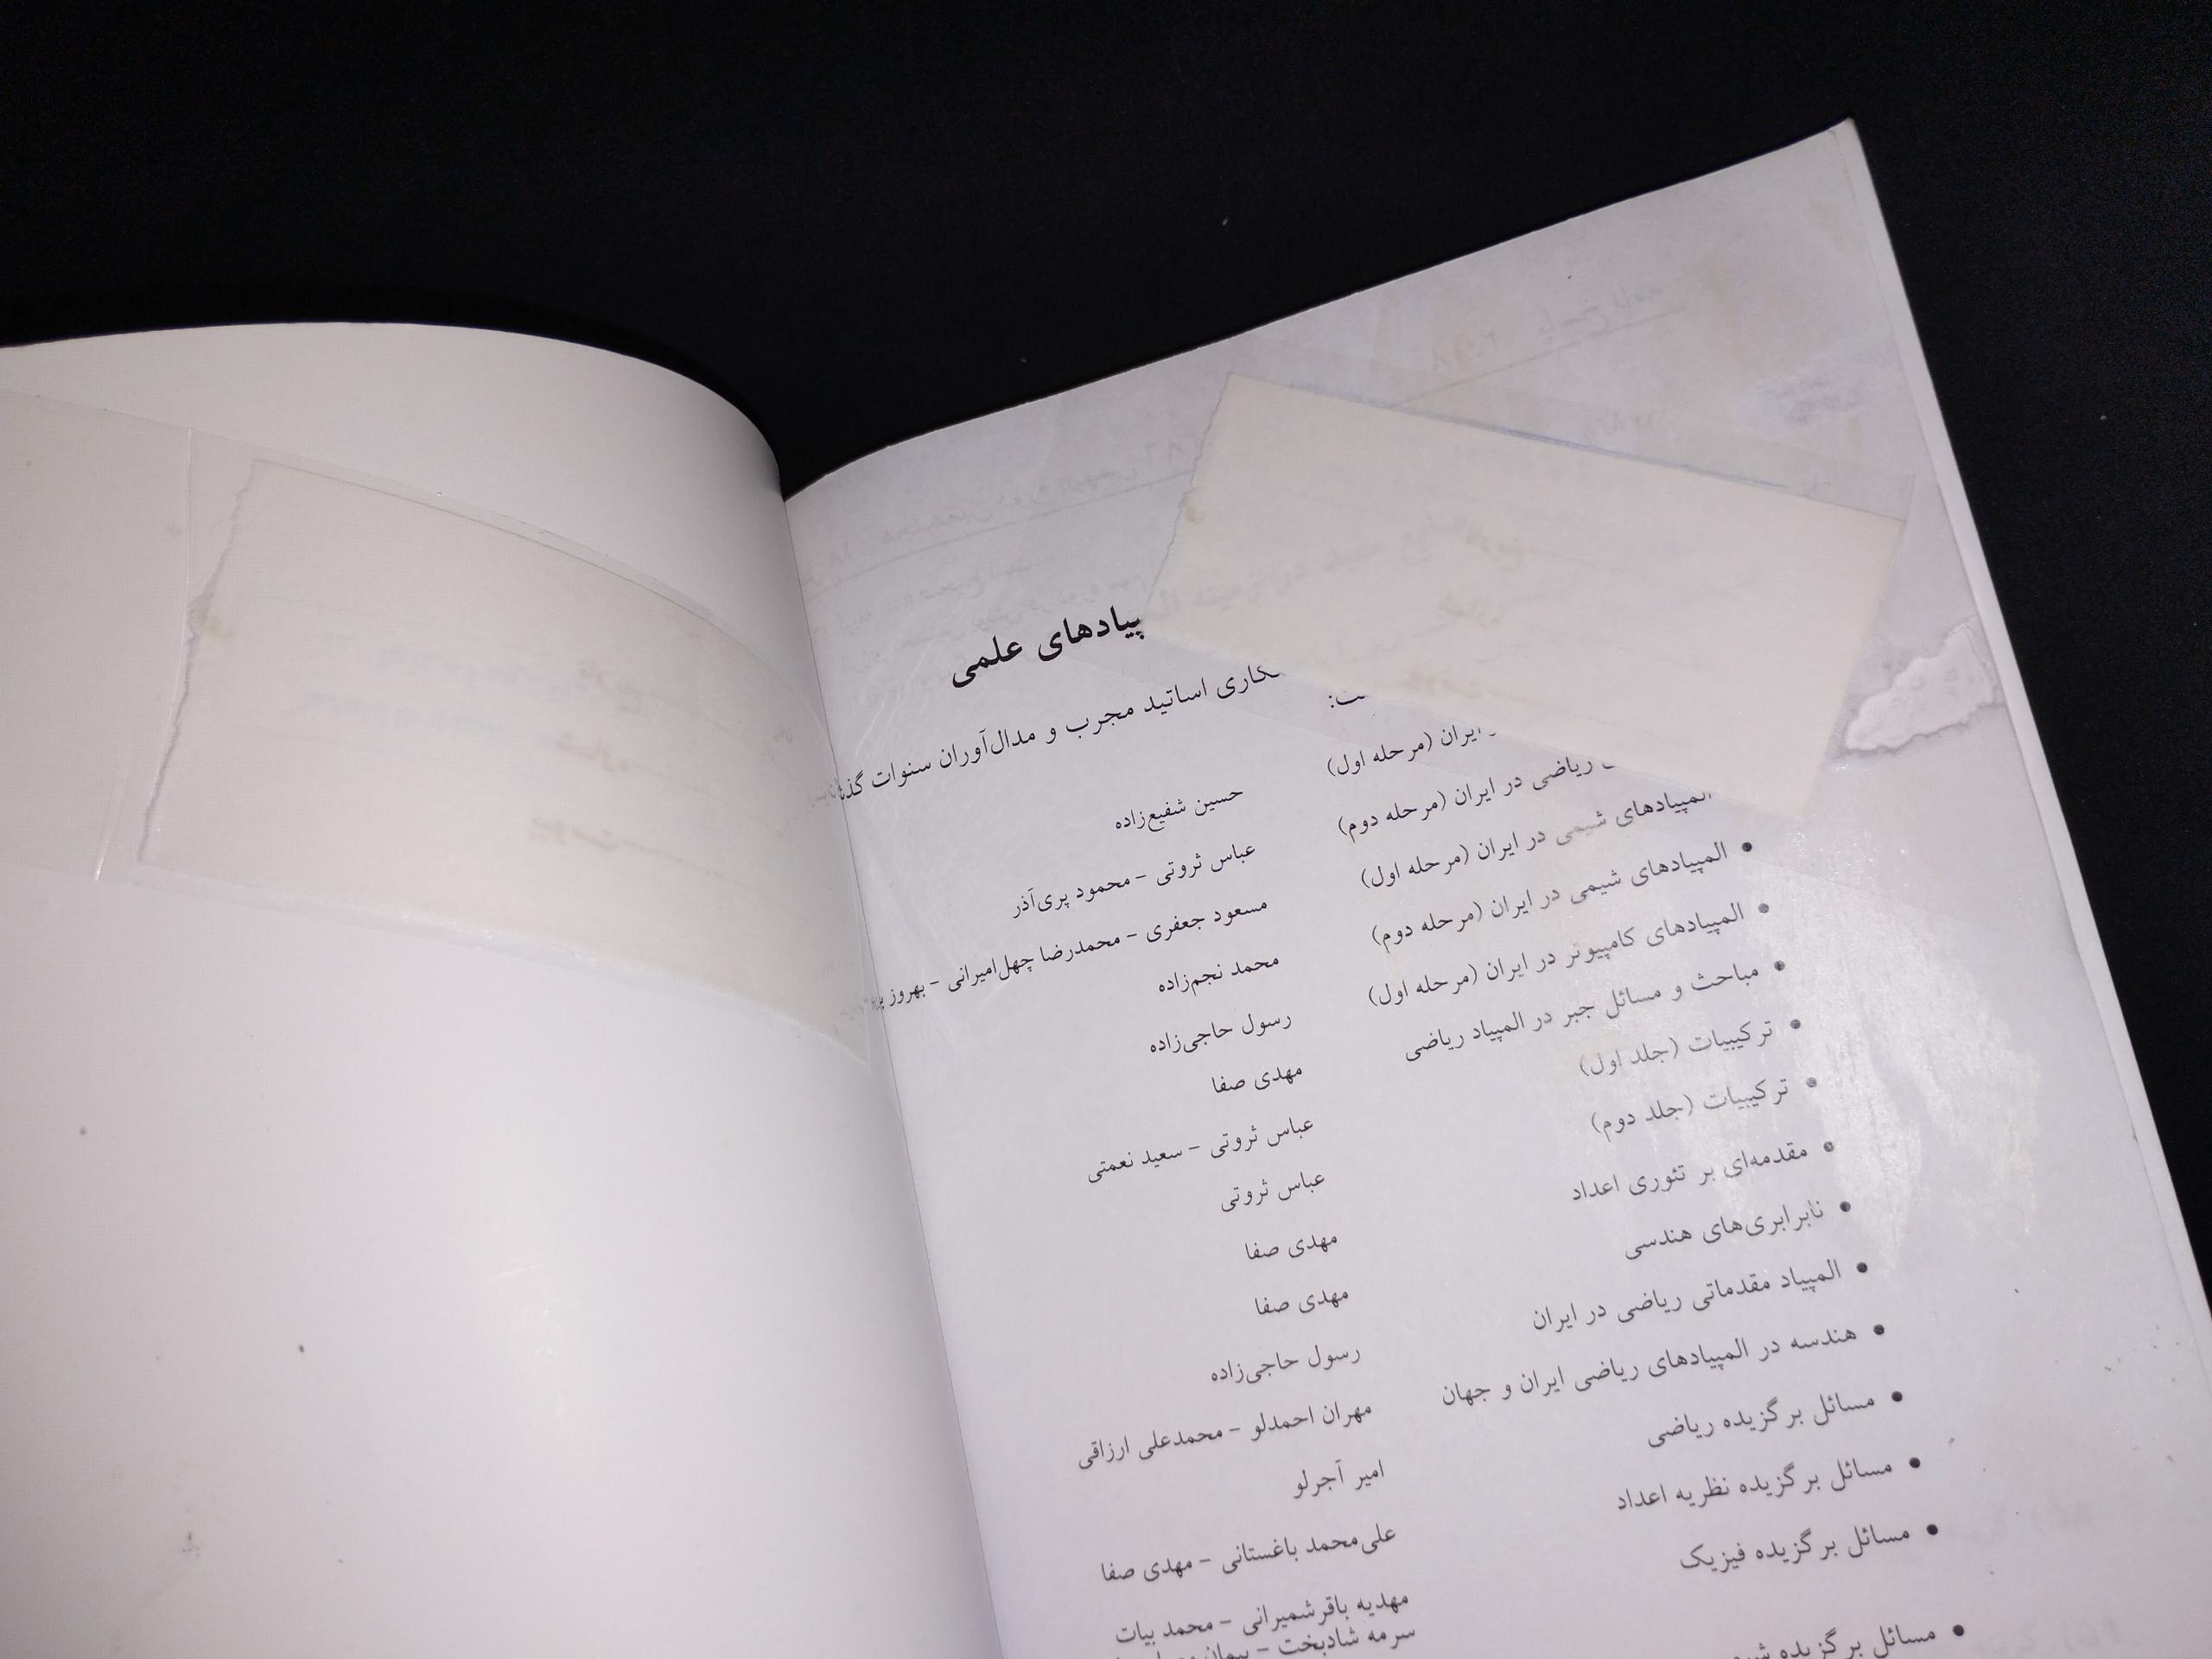 پیادهای علمی
کاری اساتید مجرب و مدال‌آوران سنوات
ایران (مرحله اول) حسین شفیع‌زاده
ریاضی در ایران (مرحله دوم) عباس ثروتی – محمود پری‌آذر
المپیادهای شیمی در ایران (مرحله اول) مسعود جعفری – محمدرضا چهل‌امیرانی – بهروز
• المپیادهای شیمی در ایران (مرحله دوم) محمد نجم‌زاده
• المپیادهای کامپیوتر در ایران (مرحله اول) رسول حاجی‌زاده
• مباحث و مسائل جبر در المپیاد ریاضی مهدی صفا
• ترکیبیات (جلد اول) عباس ثروتی – سعید نعمتی
• ترکیبیات (جلد دوم) عباس ثروتی
• مقدمه‌ای بر تئوری اعداد مهدی صفا
• نابرابری‌های هندسی مهدی صفا
• المپیاد مقدماتی ریاضی در ایران رسول حاجی‌زاده
• هندسه در المپیادهای ریاضی ایران و جهان مهران احمدلو – محمدعلی ارزاقی
• مسائل برگزیده ریاضی امیر آجرلو
• مسائل برگزیده نظریه اعداد علی‌محمد باغستانی – مهدی صفا
• مسائل برگزیده فیزیک مهدیه باقرشمیرانی – محمد بیات
• مسائل برگزیده سرمه شادبخت –